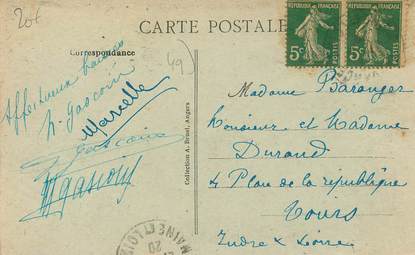 20f
CARTE POSTALE
Correspondance
49
Affectueux baisers
H. Gascoin
Marcelle
Gascoin
Hgascoin
Collection A. Bruel, Angers
RÉPUBLIQUE FRANÇAISE
5c
POSTES
RÉPUBLIQUE FRANÇAISE
5c
POSTES
Madame Baranger
Monsieur et Madame
Durand
4 Place de la république
Tours
Indre & Loire
MAINE ET LOIRE
20